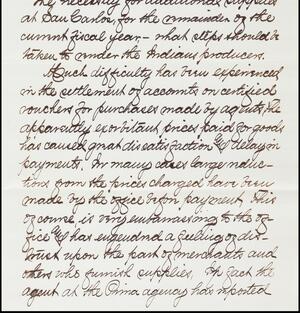 the necessity for additional supplies
at San Carlos, for the remainder of the
current fiscal year — what steps should be
taken to under the Indians producers.
Much difficulty has been experienced
in the settlement of accounts on certified
vouchers for purchases made by agents, the
apparently exorbitant prices paid for goods
has caused great dissatisfaction & delay in
payments. In many cases large reduc-
tions from the prices charged have been
made by the office before payment. This
of course is very embarrassing to the of-
fice & has engendered a feeling of dis-
trust upon the part of merchants and
others who furnish supplies. In fact the
agent at the Pima agency has reported